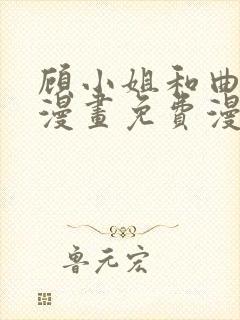 顾小姐和曲
漫畫免費漫
鲁元宏